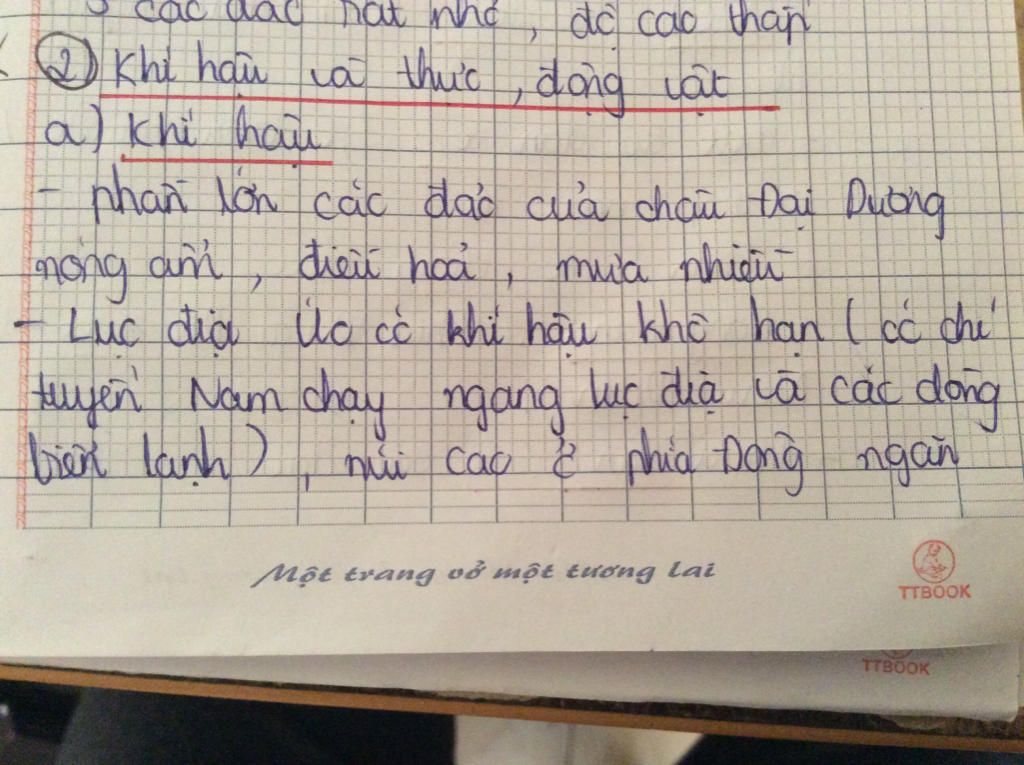 các đảo nhỏ, độ cao thấp
② Khí hậu và thực, động vật
a) Khí hậu
- phần lớn các đảo của châu Đại Dương
nóng ẩm, điều hoả, mưa nhiều
- Lục địa Úc có khí hậu khô hạn (có chí
tuyến Nam chạy ngang lục địa và các dòng
biển lạnh), núi cao ở phía Đông ngăn
Một trang vở một tương lai
TTBOOK
TTBOOK